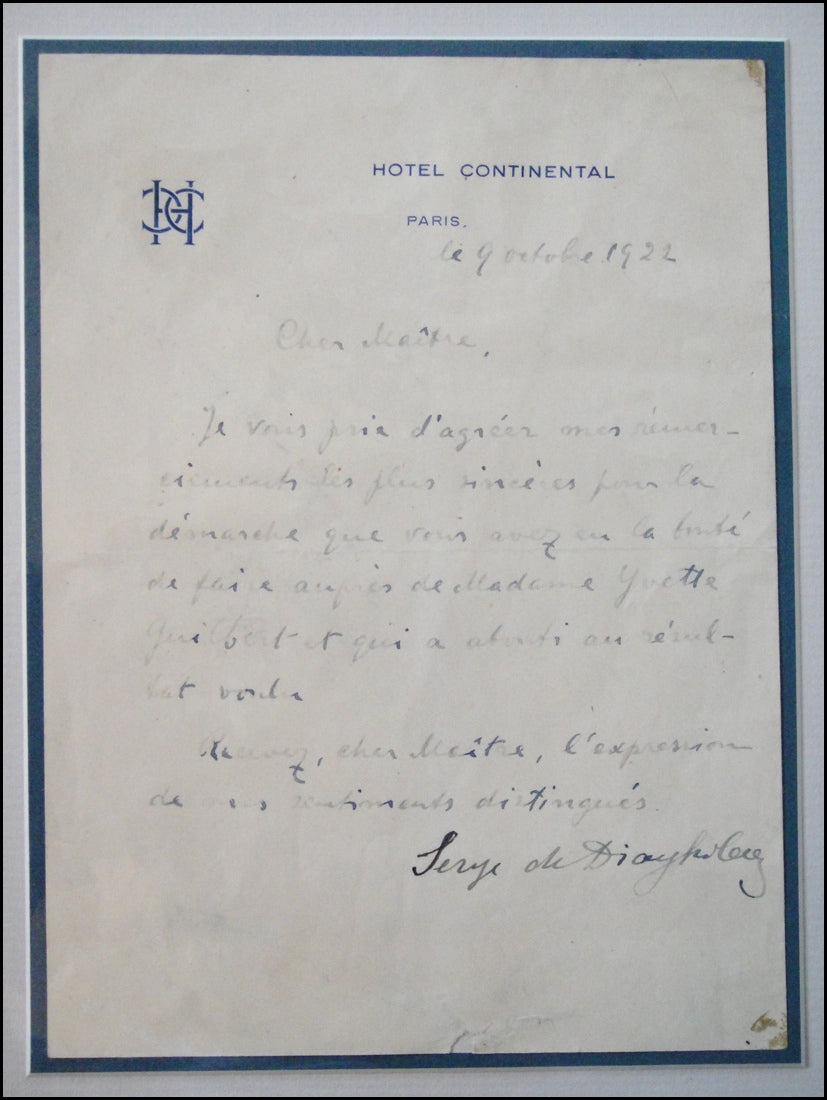 HOTEL CONTINENTAL
PARIS,
le 9 octobre 1922
Cher Maître,
Je vous prie d'agréer mes remer-
ciements les plus sincères pour la
démarche que vous avez eu la bonté
de faire auprès de Madame Yvette
Guilbert et qui a abouti au résul-
tat voulu
Recevez, cher Maître, l'expression
de mes sentiments distingués.
Serge de Diaghilew